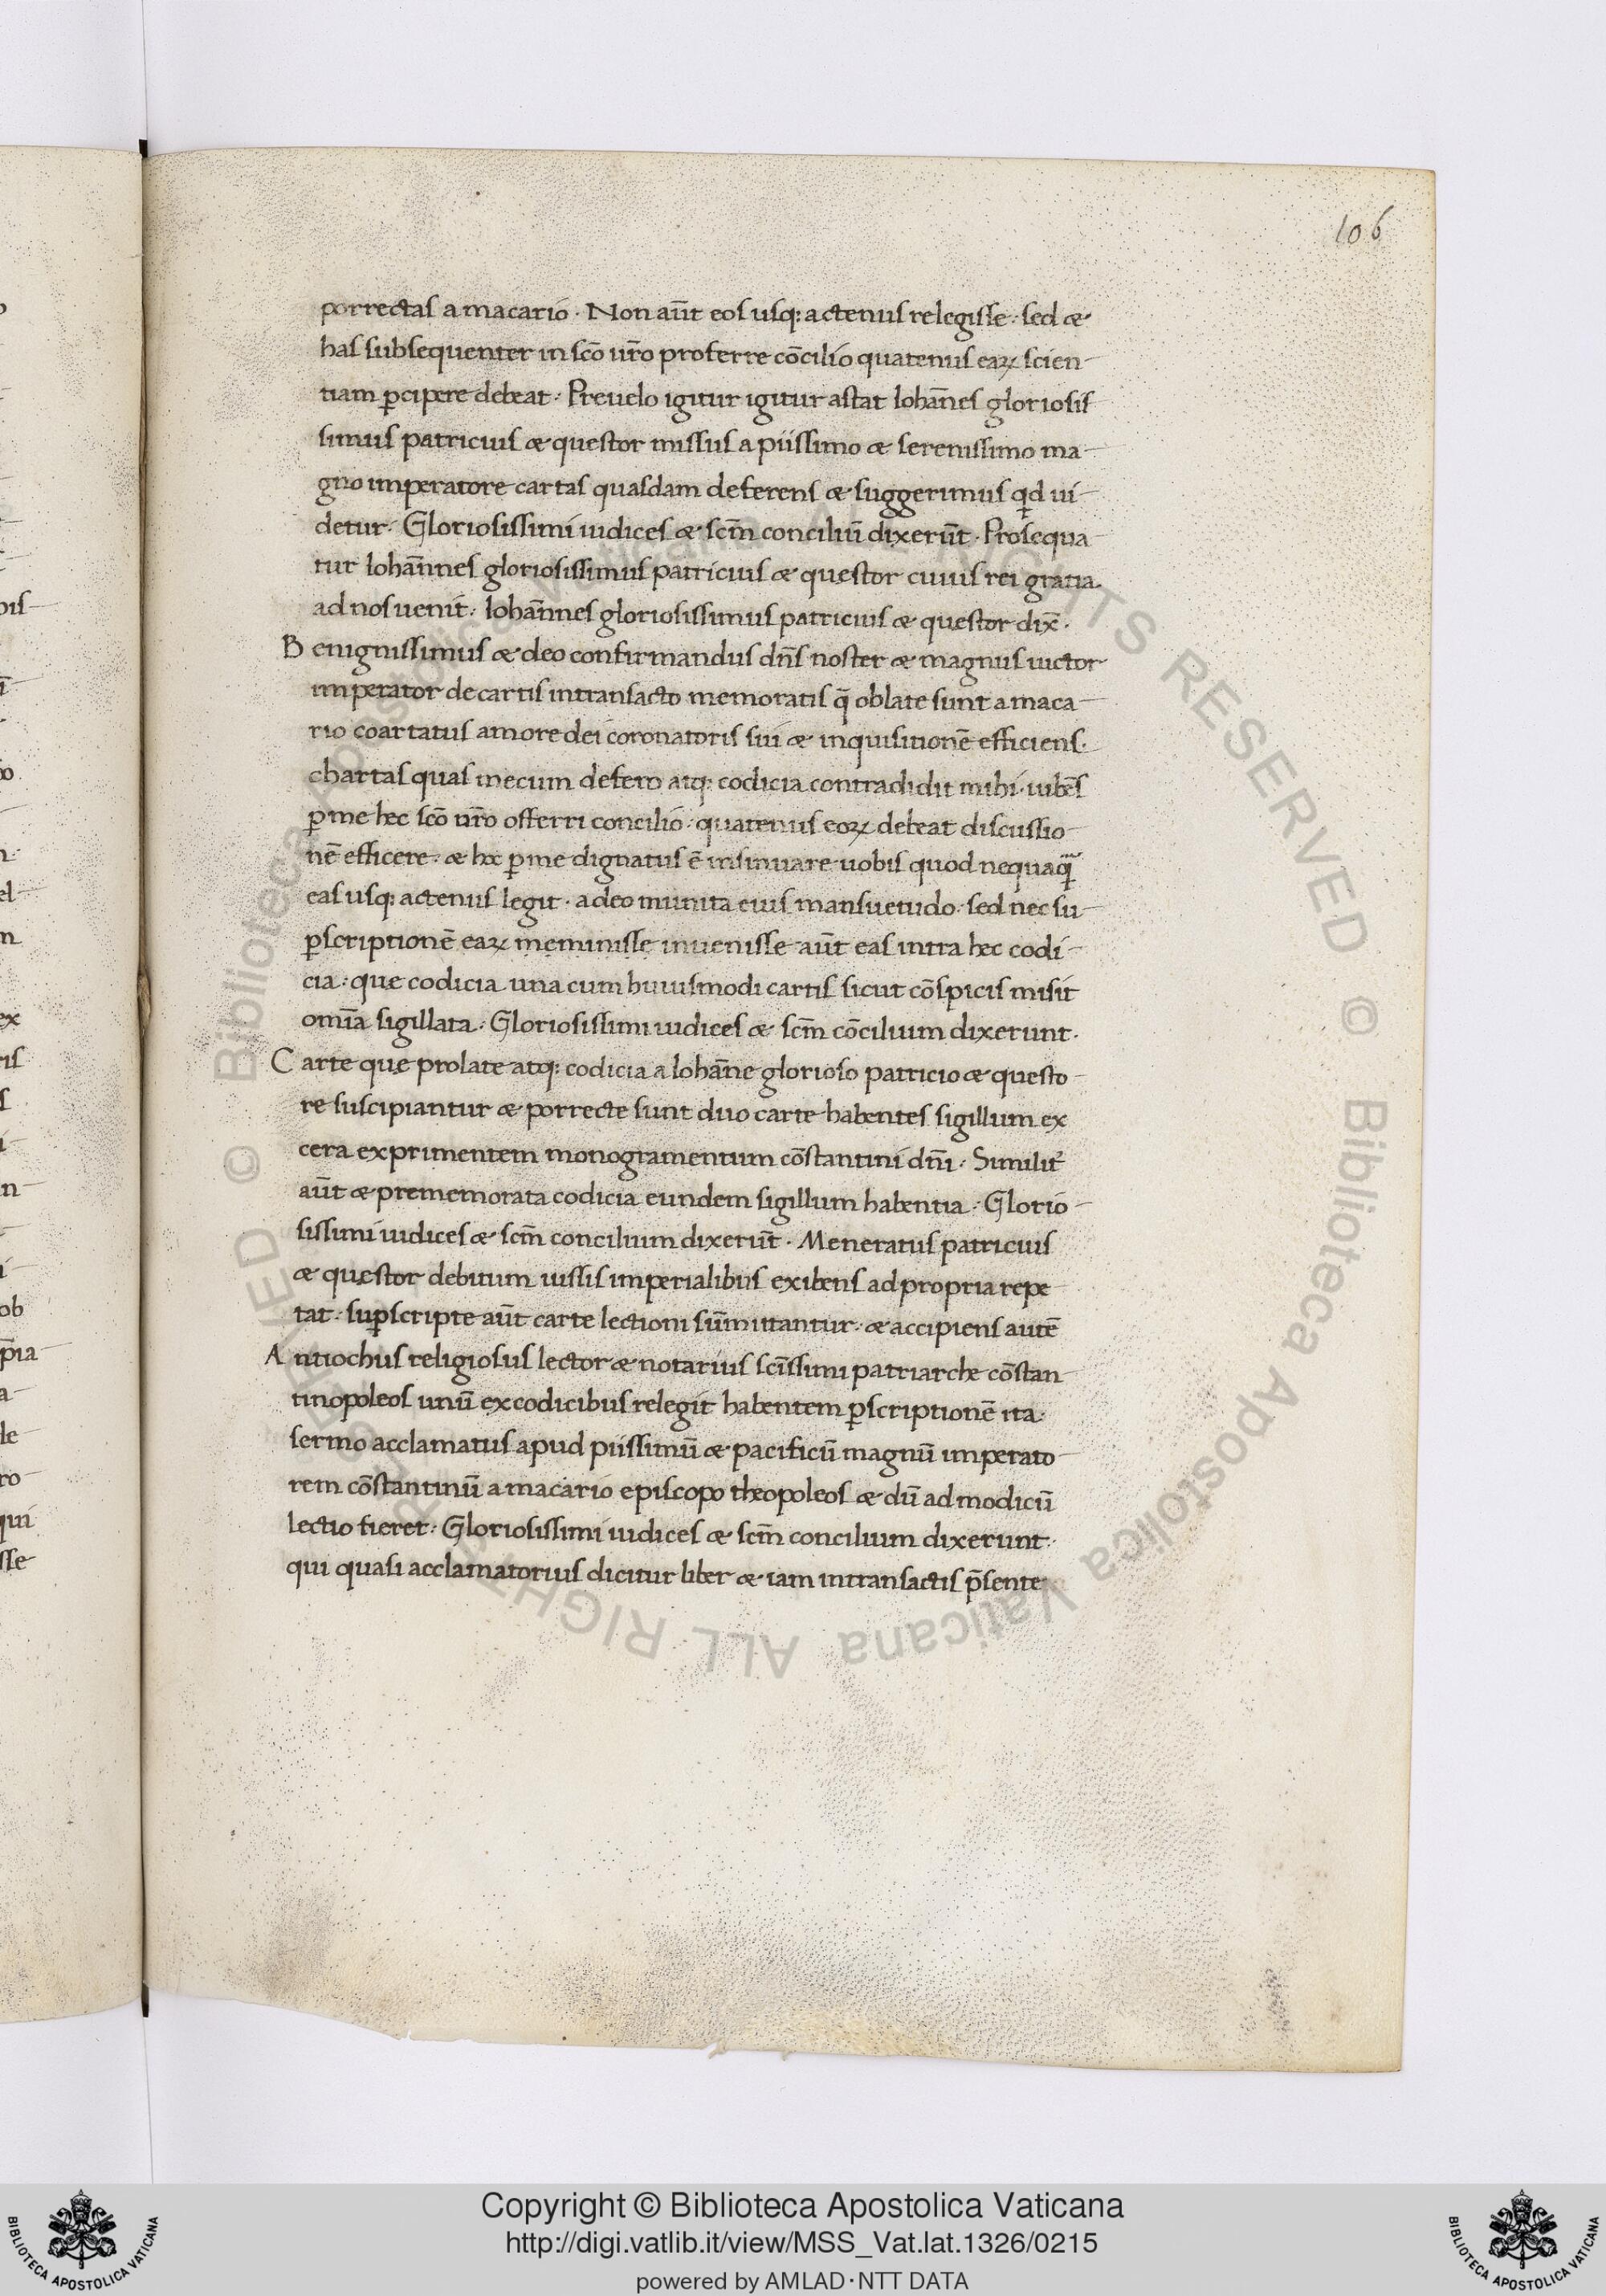 106
porrectas a macario · Non aūt eos usq; actenus relegisse · sed &
has subsequenter in scō ur̄o proferre cōcilio quatenus eaꝝ scien-
tiam ꝑcipere debeat · Preuelo igitur igitur astat Iohānes gloriosis
simus patricius & questor missus a piissimo & serenissimo ma-
gno imperatore cartas quasdam deferens & suggerimus qd ui-
detur · Gloriosissimi iudices & scm̄ conciliū dixerūt · Prosequa-
tur Iohānnes gloriosissimus patricius & questor cuius rei gratia
ad nos uenit · Iohānnes gloriosissimus patricius & questor dix̄ ·
Benignissimus & deo confirmandus dn̄s noster & magnus uictor
imperator de cartis intransacto memoratis q̄ oblate sunt a maca-
rio coartatus amore dei coronatoris sui & inquisitionē efficiens ·
chartas quas mecum defero atq; codicia contradidit mihi · iubēs
ꝑ me hec scō ur̄o offerri concilio · quatenus eoꝝ debeat discussio-
nē efficere · & hoc ꝑ me dignatus ē insinuare uobis quod nequaqͣ
eas usq; actenus legit · a deo munita eius mansuetudo · sed nec su-
ꝑscriptionē eaꝝ meminisse inuenisse aūt eas intra hec codi-
cia · que codicia una cum huiusmodi cartis sicut cōspicis misit
omīa sigillata · Gloriosissimi iudices & scm̄ cōcilium dixerunt ·
Carte que prolate atq; codicia a Iohāne glorioso patricio & questo-
re suscipiantur & porrecte sunt duo carte habentes sigillum ex
cera exprimentem monogramentum cōstantini dn̄i · Similit̉
aūt & prememorata codicia eundem sigillum habentia · Glorio-
sissimi iudices & scm̄ concilium dixerūt · Meneratus patricius
& questor debitum iussis imperialibus exibens ad propria repe-
tat · suꝑscripte aūt carte lectioni sūmittantur · & accipiens autē
Antiochus religiosus lector & notarius scīssimi patriarche cōstan-
tinopoleos unū ex codicibus relegit habentem ꝑscriptionē ita ·
sermo acclamatus apud piissimū & pacificū magnū imperato-
rem cōstantinū a macario episcopo theopoleos & dū ad modicū
lectio fieret · Gloriosissimi iudices & scm̄ concilium dixerunt ·
qui quasi acclamatorius dicitur liber & iam intransactis p̄sente
Copyright © Biblioteca Apostolica Vaticana
http://digi.vatlib.it/view/MSS_Vat.lat.1326/0215
powered by AMLAD·NTT DATA